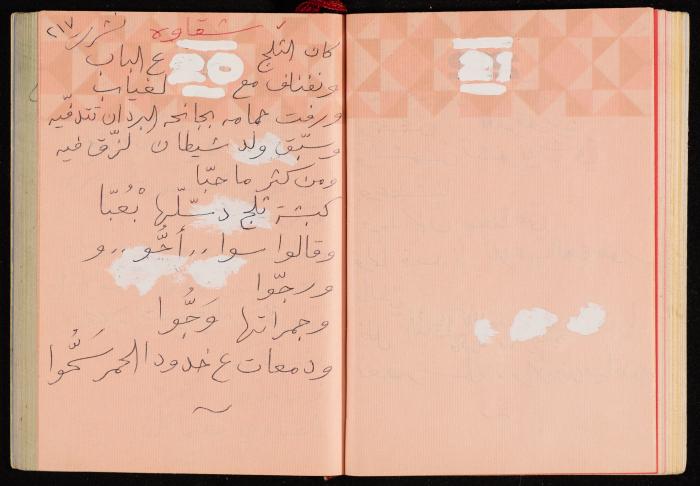 شقاوه نشرت ٢١٧
كان الثلج ع الباب
20
ونفناف مع لغياب
ورفت حمامه بجانحه البردان تتدفّيه
وسبّق ولد شيطان لزّق فيه
ومن كتر ما حبّا
كبشة ثلج دسّلّها بْعُبّا
وقالوا سوا .. أحُّو .. و
ورجّوا
وجمراتها وَجُّوا
ودمعات ع خدودا الحمر سَحُّوا
21